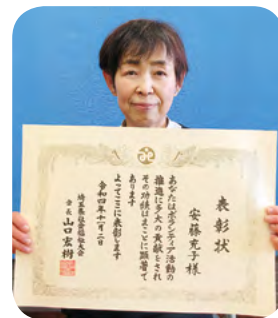 表彰状
安藤充子様
あなたはボランティア活動の
推進に多大の貢献をされ
その功績はまことに顕著で
あります
よってここに表彰します
令和四年十一月二日
埼玉県社会福祉大会
会長 山口宏樹